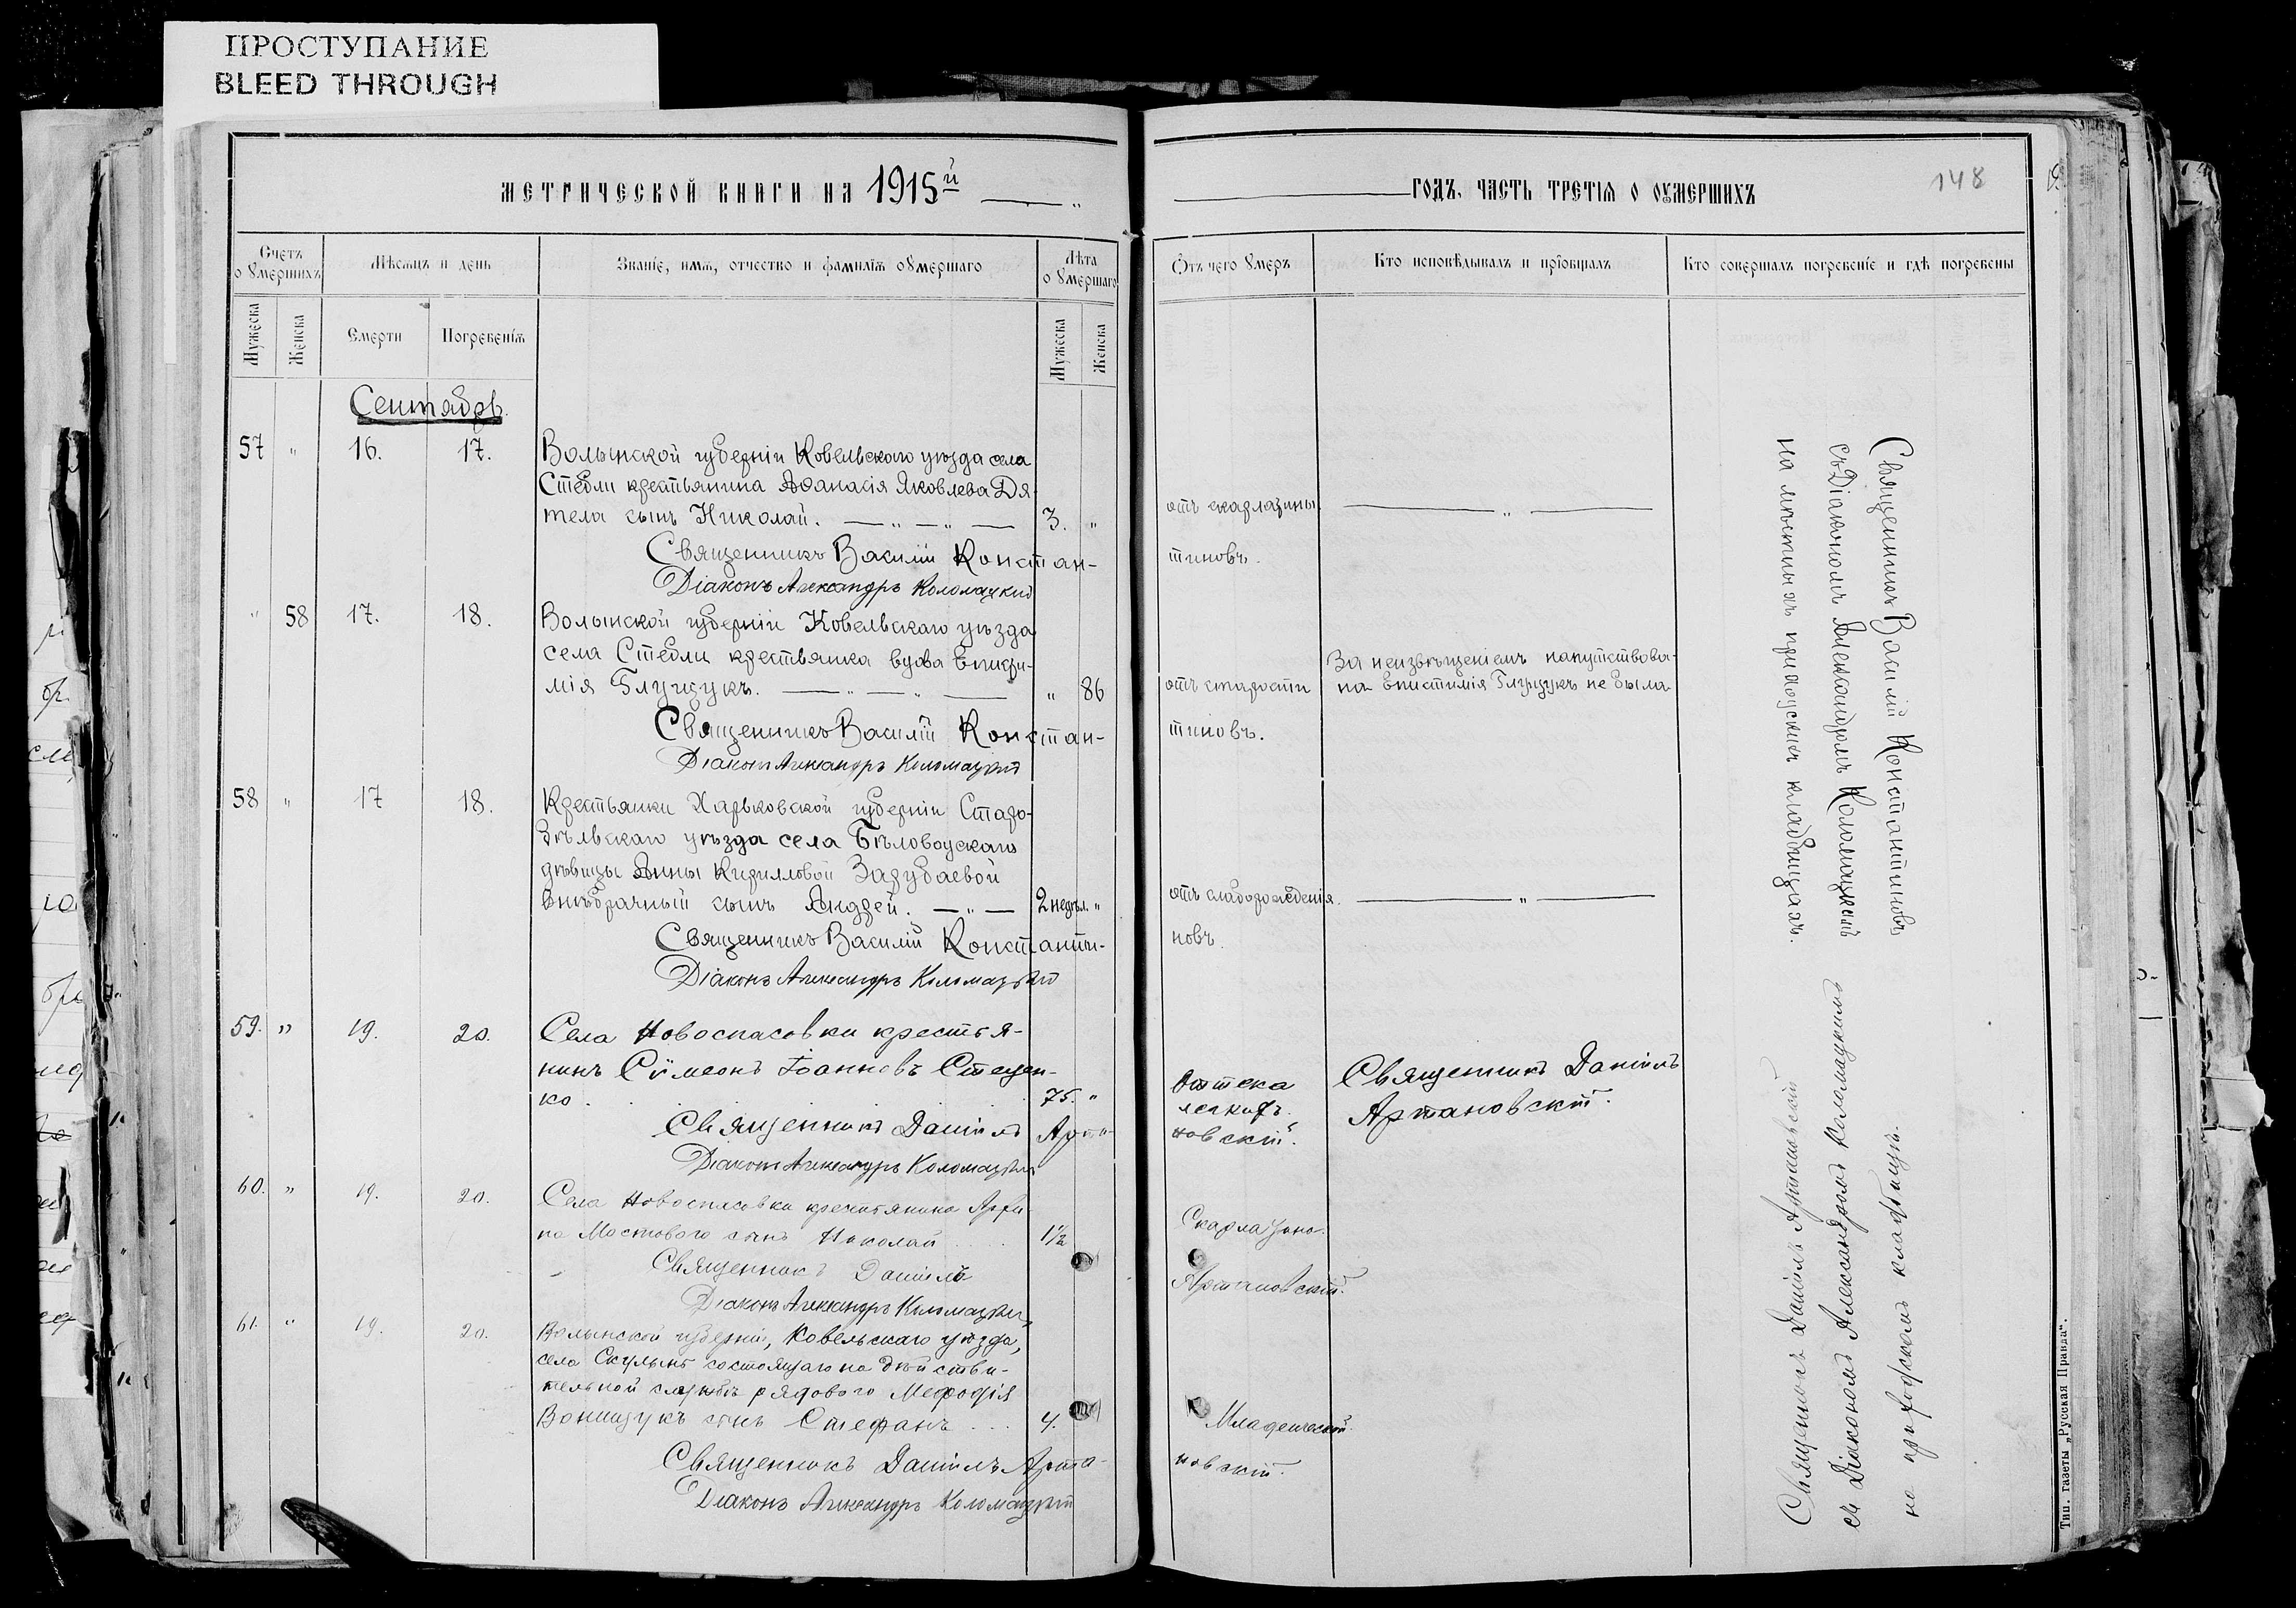 ПРОСТУПАНИЕ
BLEED THROUGH
МЕТРИЧЕСКОЙ КНИГИ НА 1915й
Счетъ о умершихъ
Мѣсяцъ и день
Званіе, имя, отчество и фамилія умершаго
Лѣта о умершаго
Мужеска
Женска
Смерти
Погребенія
Мужеска
Женска
Сентябрь.
57 " 16. 17. Волынской губерніи Ковельскаго уѣзда села
Стебли крестьянина Аѳанасія Яковлева Дя-
тела сынъ Николай. — " — " — 3. "
Священникъ Василій Констан-
Діаконъ Александръ Коломацкій
" 58 17. 18. Волынской губерніи Ковельскаго уѣзда
села Стебли крестьянка вдова Еписти-
мія Глущукъ. — " — " — " 86
Священникъ Василій Констан-
Діаконъ Александръ Коломацкій
58 " 17 18. Крестьянки Харьковской губерніи Старо-
бѣльскаго уѣзда села Бѣловодскаго
дѣвицы Анны Кирилловой Зарубаевой
внѣбрачный сынъ Андрей. — " — 2 недѣл. "
Священникъ Василій Константи-
Діаконъ Александръ Коломацкій
59. " 19. 20. Села Новоспасовки крестья-
нинъ Сѵмеонъ Іоанновъ Стецен-
ко. 75. "
Священникъ Даніилъ Арта-
Діаконъ Александръ Коломацкій
60. " 19. 20. Села Новоспасовки крестьянина Архи-
па Мостового сынъ Николай 1½
Священникъ Даніилъ
Діаконъ Александръ Коломацкій
61. " 19. 20. Волынской губерніи, Ковельскаго уѣзда,
села Скулынъ состоящаго на дѣйстви-
тельной службѣ рядового Мефодія
сынъ Стефанъ 4.
Священникъ Даніилъ Арта-
Діаконъ Александръ Коломацкій
ГОДЪ, ЧАСТЬ ТРЕТІЯ О ОУМЕРШИХЪ
148
Отъ чего умеръ
Кто исповѣдывалъ и пріобщалъ
Кто совершалъ погребеніе и гдѣ погребены
отъ скарлатины. — " —
тиновъ.
За неизвѣщеніемъ напутствова-
отъ старости на Епистимія Глущукъ не была
тиновъ.
отъ слаборожденія. — " —
новъ.
Священникъ Даніилъ
Артановскій.
Отъ отека
легкихъ.
новскій.
Скарлатина.
Артановскій.
Младенческой.
новскій.
Священникъ Василій Константиновъ
съ Діакономъ Александромъ Коломацкій
на мѣстныхъ приходскихъ кладбищахъ.
Священникъ Даніилъ Артановскій
съ Діакономъ Александромъ Коломацкимъ
на приходскомъ кладбищѣ.
Тип. газеты „Русская Правда“.